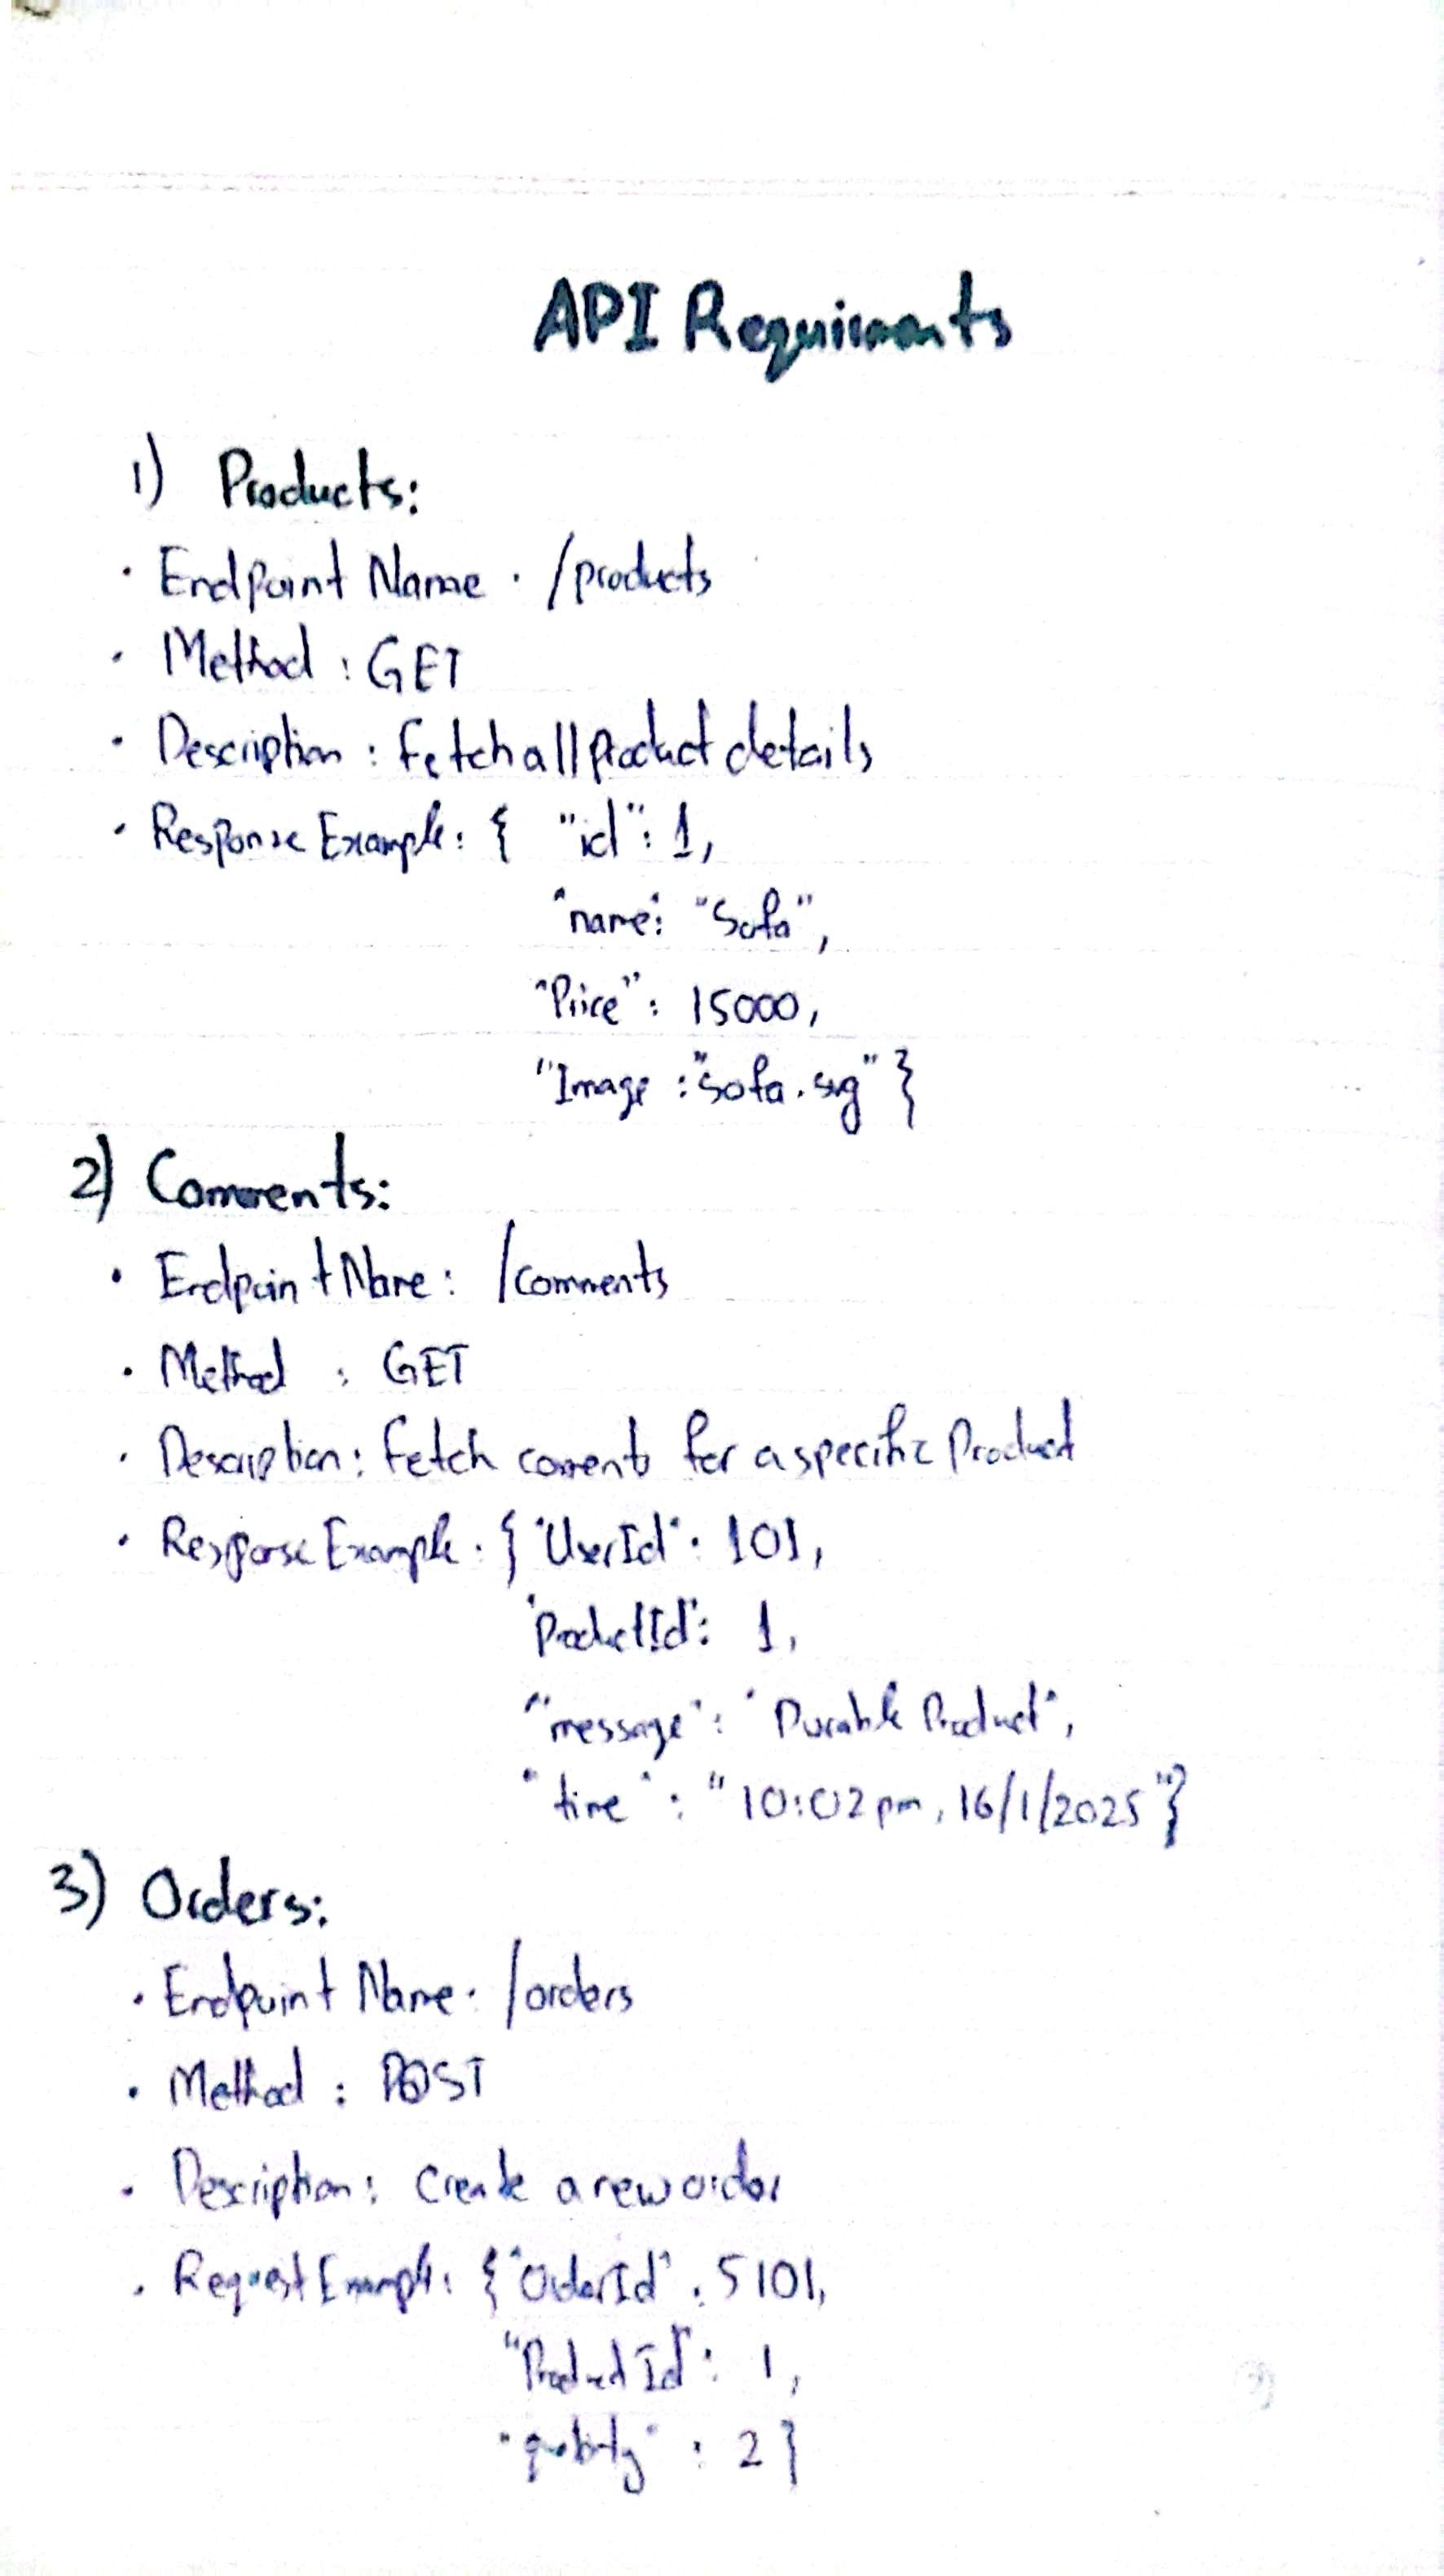 API Requirments
1) Products:
• Endpoint Name : /products
• Method : GET
• Description : fetch all product details
• Response Example : { "id" : 1,
"name" : "Sofa",
"Price" : 15000,
"Image : "sofa.svg" }
2) Comments:
• Endpoint Name : /comments
• Method : GET
• Description : fetch coments for a specific Product
• Response Example : { "UserId" : 101,
"ProductId" : 1,
"message" : "Durable Product",
"time" : "10:02 pm, 16/1/2025"}
3) Orders:
• Endpoint Name : /orders
• Method : POST
• Description : Create a new order
• Request Example : {"OrderId" : 5101,
"Product Id" : 1,
: 2 }